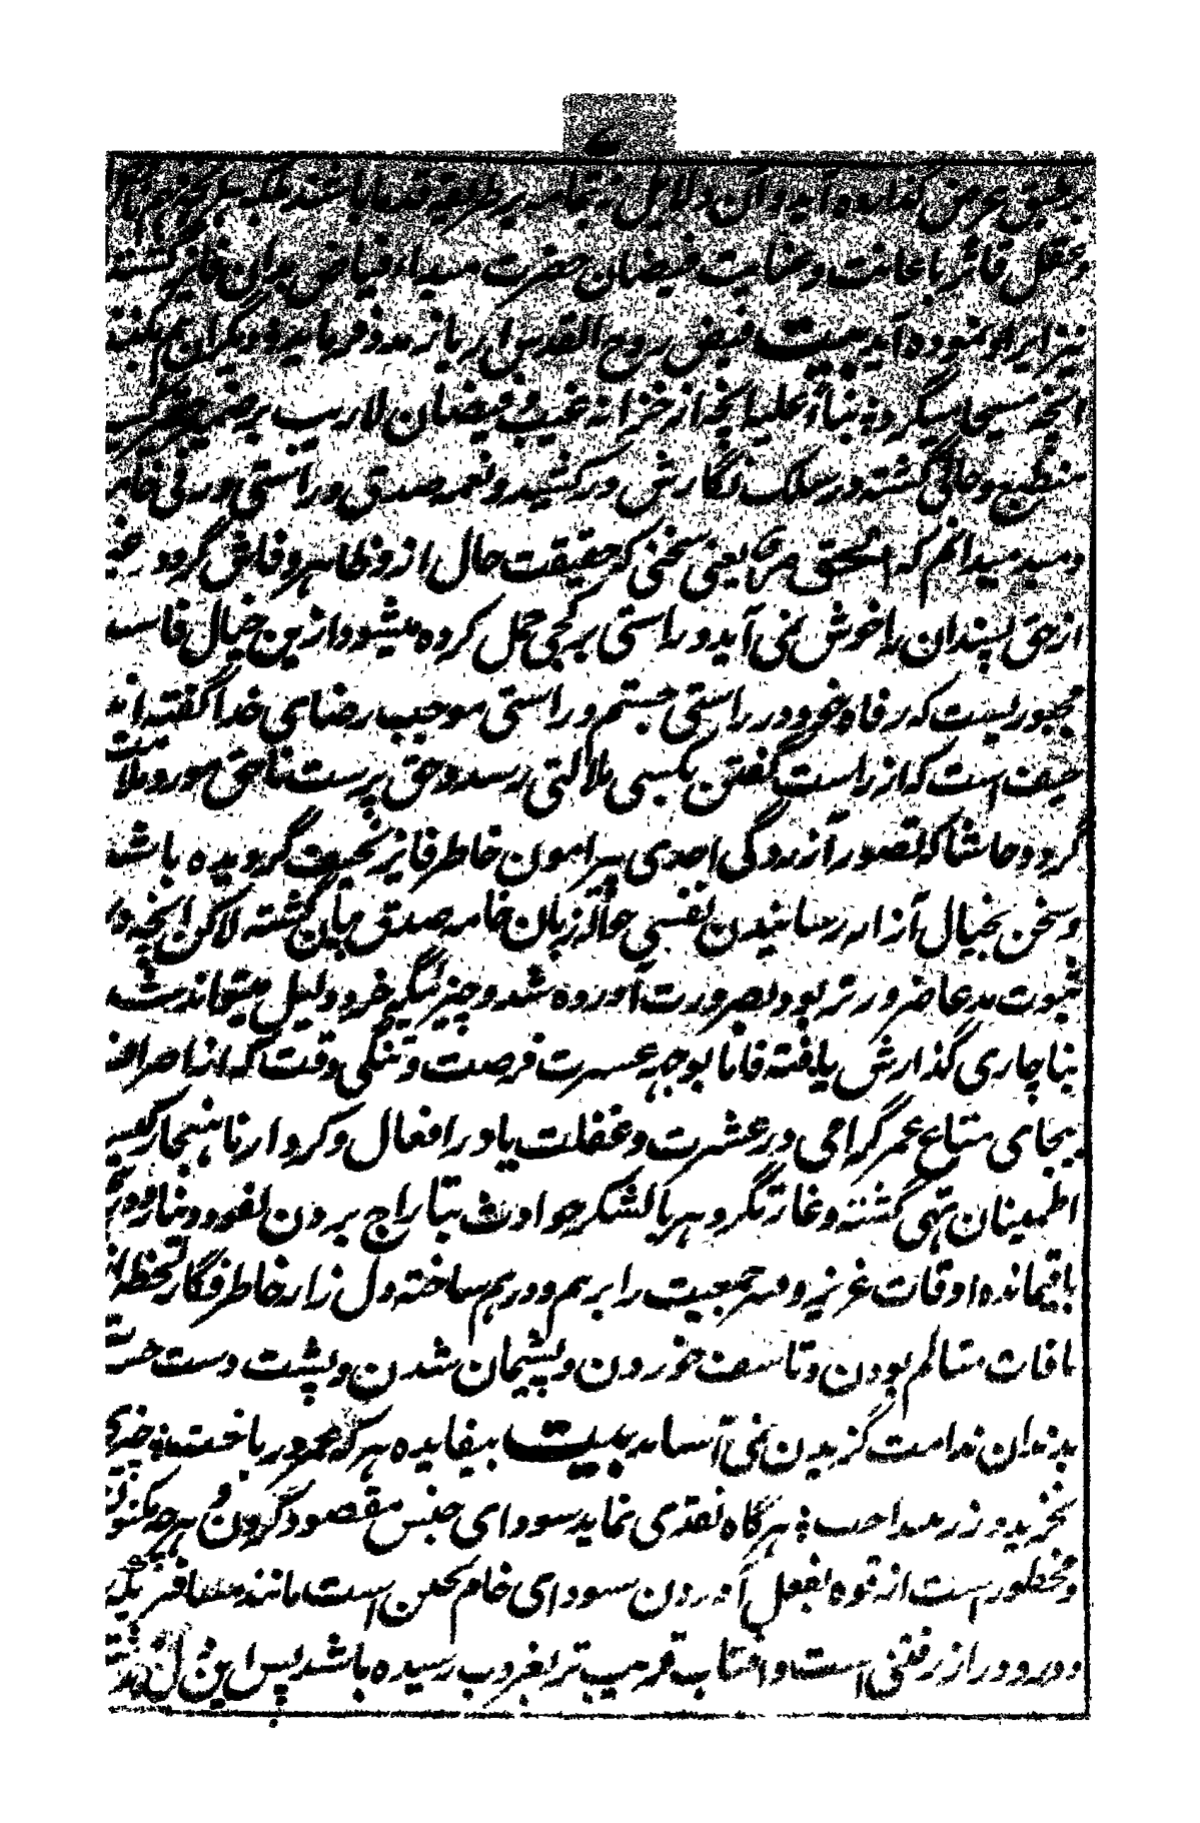 بر طبق عرض گذارده آید و آن دلایل نه بتمامه بر طریقه قدما باشند بلکه
و عقل قاثر باعانت و عنایت فیضان حضرت مبداء فیاض بدان فایز گشته
نیز ایراد نموده آید بیت فیض روح القدس ار باز مدد فرماید دیگران هم بکنند
آنچه مسیحا میکرد بناءً علیه آنچه از خزانه غیب و فیضان لاریب بر ضمیر
منطبع و حالی گشته در سلک نگارش در کشید و نغمه صدق و راستی
میدانم که الحق مر یعنی سخنی که حقیقت حال از و ظاهر و فاش گردد
از حق پسندان را خوش نمی آید و راستی بر کجی حمل کرده میشود ازین خیال فاسد
مجبوریست که رفاه خود در راستی جستم و راستی موجب رضای خدا گفته اند
حیف است که از راست گفتن بکسی ملالتی رسد و حق پرست ناحق مورد ملامت
گردد حاشا که تصور آزردگی احدی پیرامون خاطر فایز نحیف گردیده باشد
و سخن بخیال آزار رسانیدن نفسی حواله زبان خامه صدق بیان گشته لاکن آنچه در
ثبوت مدعا ضرورتر بود بضرورت آورده شد و چیزیکه خرد دلیل میتواند شد
بناچاری گذارش یافته فاما بوجه عسرت فرصت و تنگی وقت که از اصراف
بیجای متاع عمر گرامی در عشرت و غفلت یا در افعال و کردار ناهنجار کیسه
اطمینان تهی گشته و غارتگر دهر با لشکر حوادث بتاراج بردن نقود
باقیمانده اوقات عزیز و سر جمعیت را برهم و درهم ساخته دل زار خاطر فگار لحظه از
مافات متالم بودن و تاسف خوردن و پشیمان شدن و پشت دست حسرت
بدندان ندامت گزیدن نمی آساید بیت بیفایده هر که عمر در باخت چیزی
نخرید و زر بینداخت هرگاه نقدی نماید سودای جنس مقصود کردن و هرچه مکنون
و مخطور است از قوه بفعل آوردن سودای خام محض است مانند مسافر یکه
و دور دراز رفتنی است و آفتاب قریب تر بغروب رسیده باشد پس این